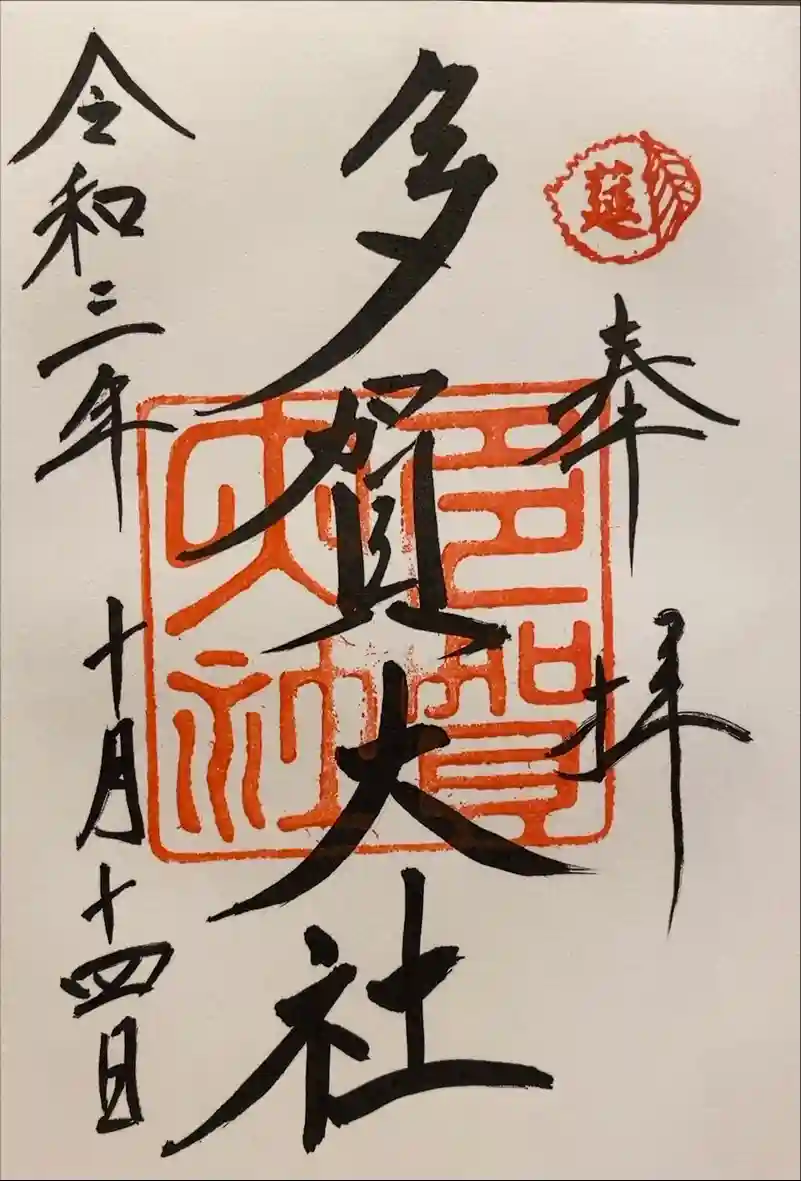 莚
奉拝
多賀大社
多賀大社
令和三年 十月十四日